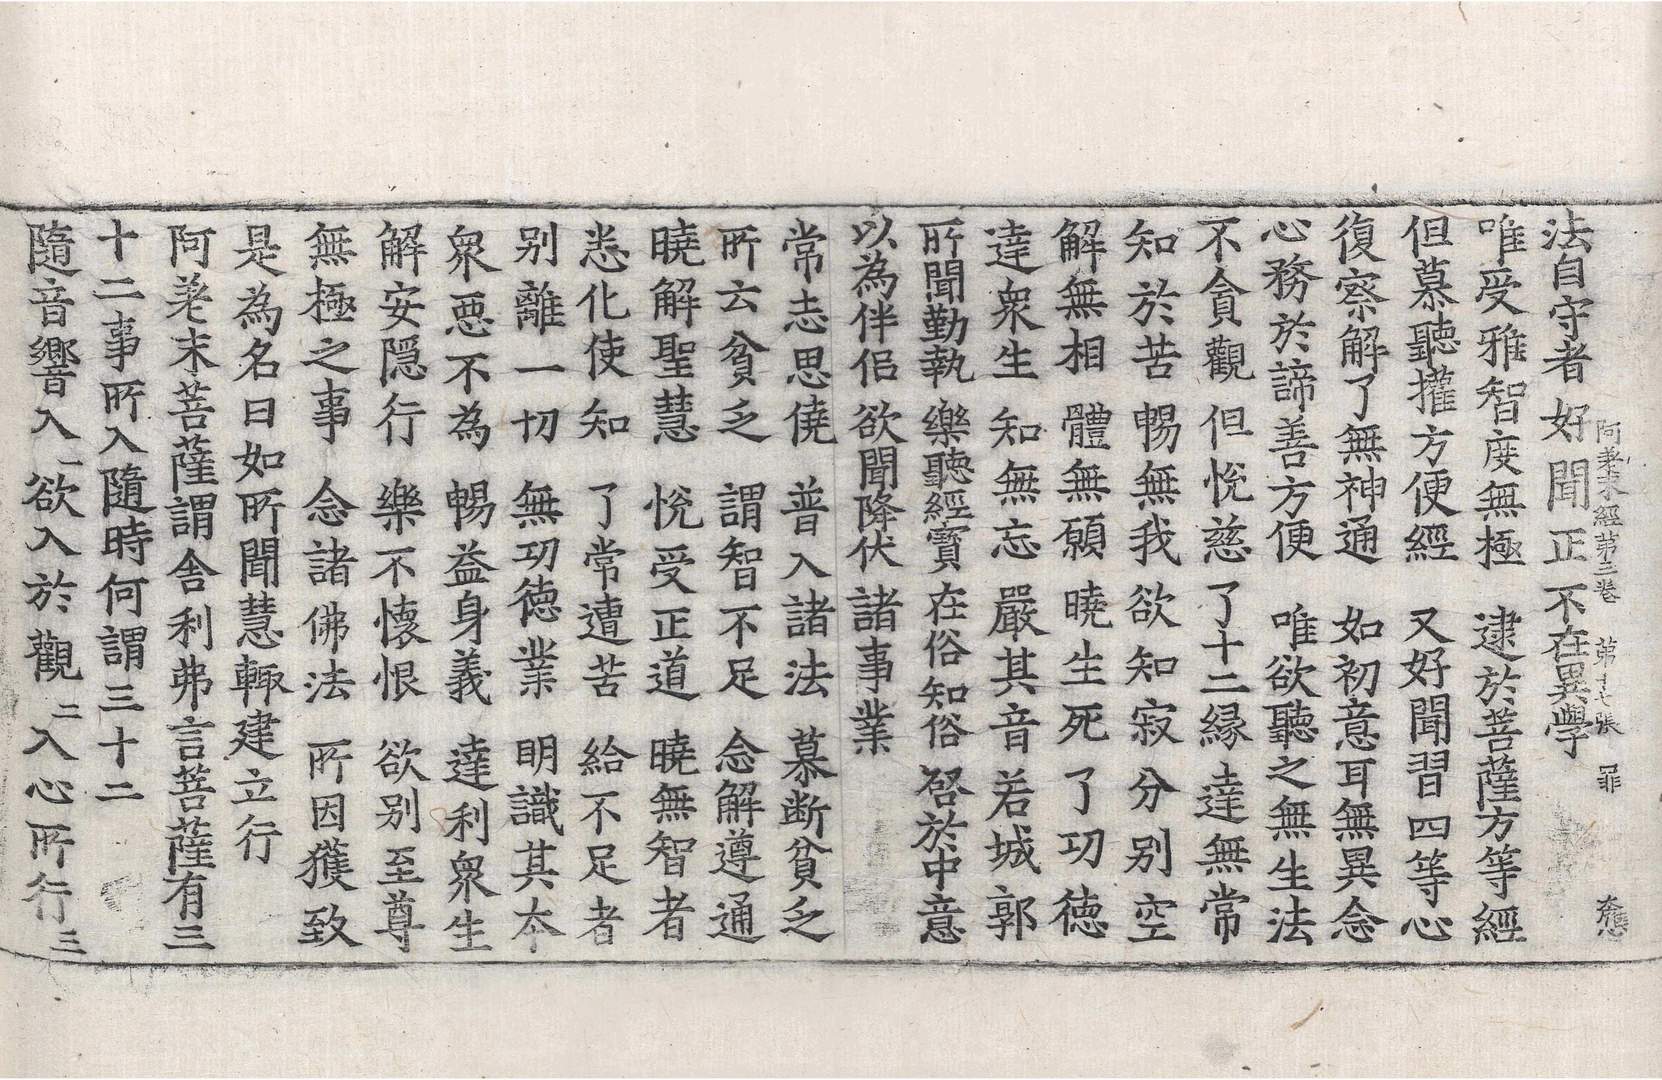 阿差末經第三卷 第十七張 罪
法自守者 好聞正 不在異學
唯受雅智度無極 逮於菩薩方等經
但慕聽權方便經 又好聞習四等心
復察解了無神通 如初意耳無異念
心務於諦善方便 唯欲聽之無生法
不貪觀 但悅慈 了十二緣 達無常
知於苦 暢無我 欲知寂 分別空
解無相 體無願 曉生死 了功德
達衆生 知無忘 嚴其音 若城郭
所聞勤執 樂聽經寶 在俗知俗 啓於中意
以為伴侶 欲聞降伏 諸事業
常志思僥 普入諸法 慕斷貧乏
所云貧乏 謂智不足 念解遵通
曉解聖慧 悅受正道 曉無智者
悉化使知 了常遭苦 給不足者
別離一切 無功德業 明識其本
衆惡不為 暢益身義 達利衆生
解安隱行 樂不懷恨 欲別至尊
無極之事 念諸佛法 所因獲致
是為名曰如所聞慧輙建立行
阿差末菩薩謂舍利弗言菩薩有三
十二事所入隨時何謂三十二
隨音響入一欲入於觀二入心所行三